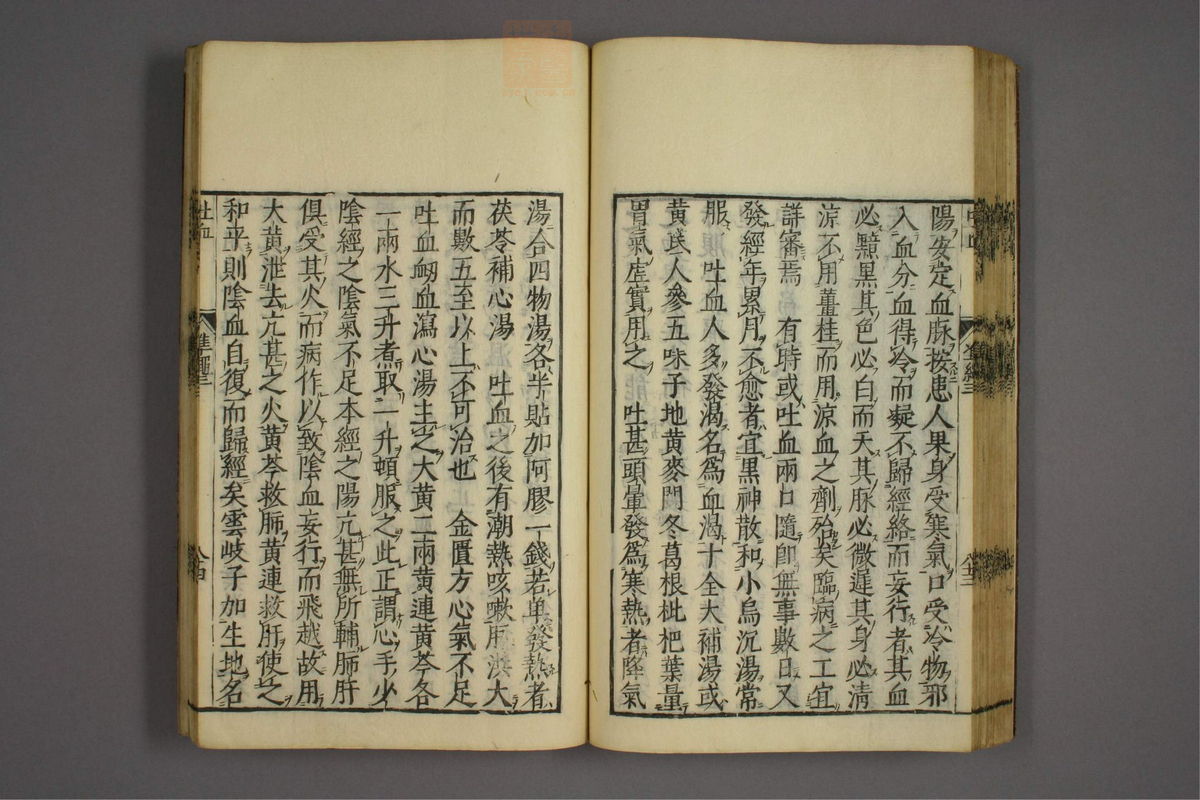 陽安定血麻按患人果身受寒氣口受冷物邪
入血分血得冷而凝不歸經絡而妄行者其血
必黯黑其色必白而夭其脉必微遲其身必清
涼不用薑桂而用涼血之劑殆矣臨病之工宜
詳審焉 有時或吐血兩口隨卽無事數日又
發經年累月不愈者宜黑神散和小烏沉湯常
服 吐血人多發渴名爲血渴十全大補湯或
黃芪人參五味子地黃麥門冬葛根枇杷葉量
胃氣虛實用之 吐甚頭暈發爲寒熱者降氣
湯合四物湯各半貼加阿膠一錢若單發熱者
茯苓補心湯 吐血之後有潮熱咳嗽脉洪大
而數五至以上不可治也 金匱方心氣不足
吐血衂血瀉心湯主之大黃二兩黃連黃芩各
一兩水三升煮取一升頓服之此正謂心手少
陰經之陰氣不足本經之陽亢甚無所輔肺肝
俱受其火而病作以致陰血妄行而飛越故用
大黃泄去亢甚之火黃芩救肺黃連救肝使之
和平則陰血自復而歸經矣雲岐子加生地名
吐血
八十四